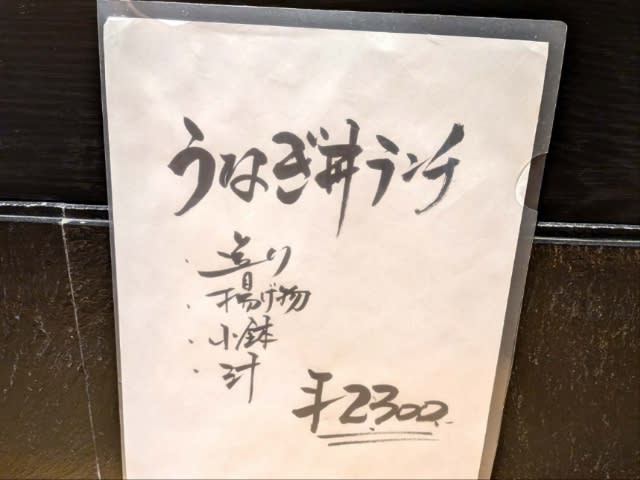 うなぎ丼ランチ
・造り
・揚げ物
・小鉢
・汁
¥2300